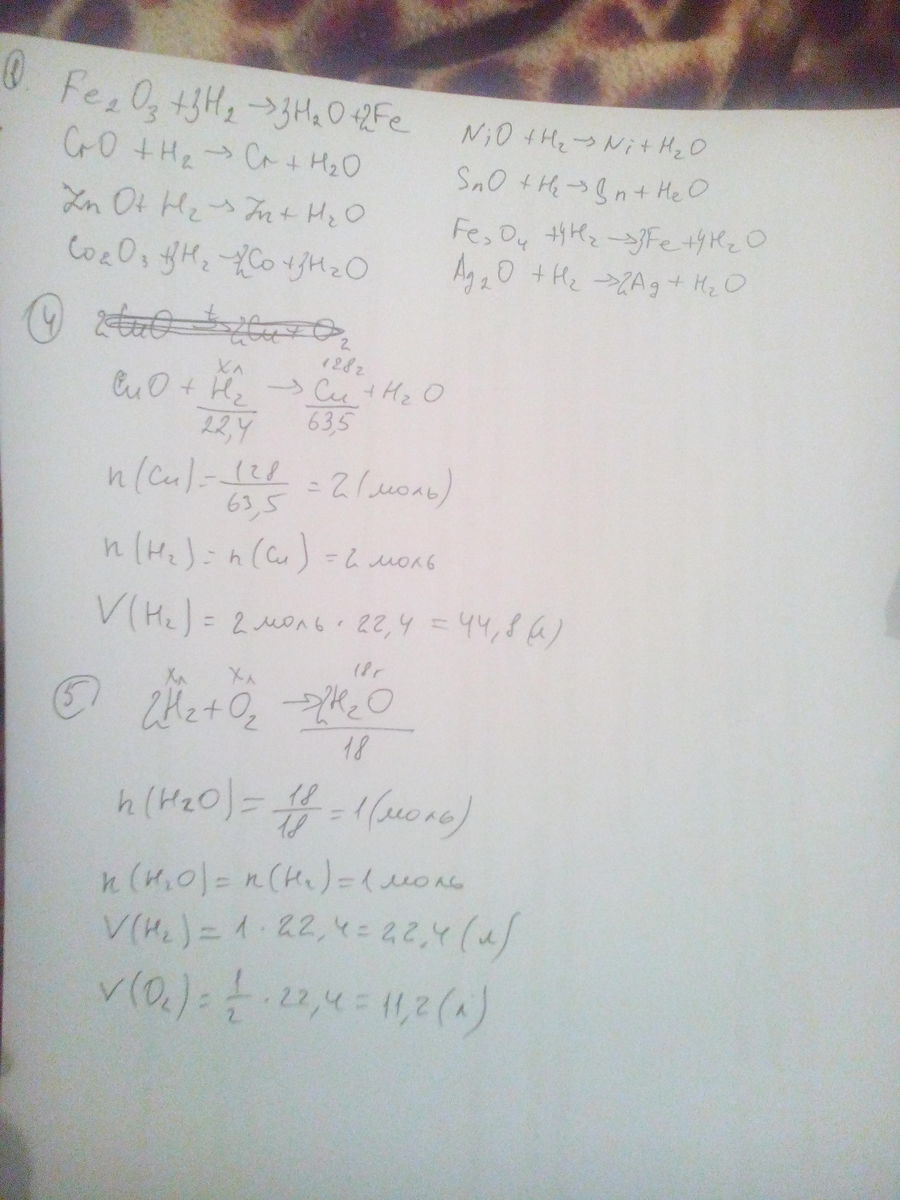 ①
Fe₂O₃ + 3H₂ → 3H₂O + 2Fe
CrO + H₂ → Cr + H₂O
ZnO + H₂ → Zn + H₂O
Co₂O₃ + 3H₂ → 2Co + 3H₂O
NiO + H₂ → Ni + H₂O
SnO + H₂ → Sn + H₂O
Fe₃O₄ + 4H₂ → 3Fe + 4H₂O
Ag₂O + H₂ → 2Ag + H₂O
④ 2CuO t→ 2Cu + O₂
xл 128г
CuO + H₂ → Cu + H₂O
22,4 63,5
n(Cu) = 128/63,5 = 2 (моль)
n(H₂) = n(Cu) = 2 моль
V(H₂) = 2 моль · 22,4 = 44,8 (л)
xл xл 18г
⑤ 2H₂ + O₂ → 2H₂O
18
n(H₂O) = 18/18 = 1 (моль)
n(H₂O) = n(H₂) = 1 моль
V(H₂) = 1 · 22,4 = 22,4 (л)
V(O₂) = 1/2 · 22,4 = 11,2 (л)